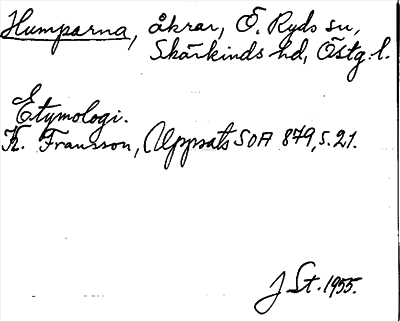 Humparna, åkrar, Ö. Ryds sn,
Skärkinds hd, Östg. l.
Etymologi.
K. Fransson, Uppsats SOA 879, s. 21.
J St. 1955.